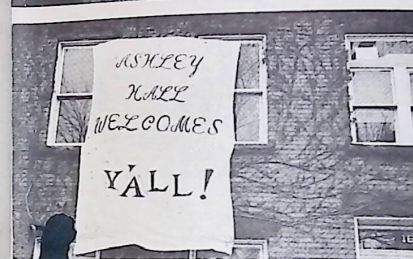 ASHLEY
HALL
WELCOMES
Y'ALL!